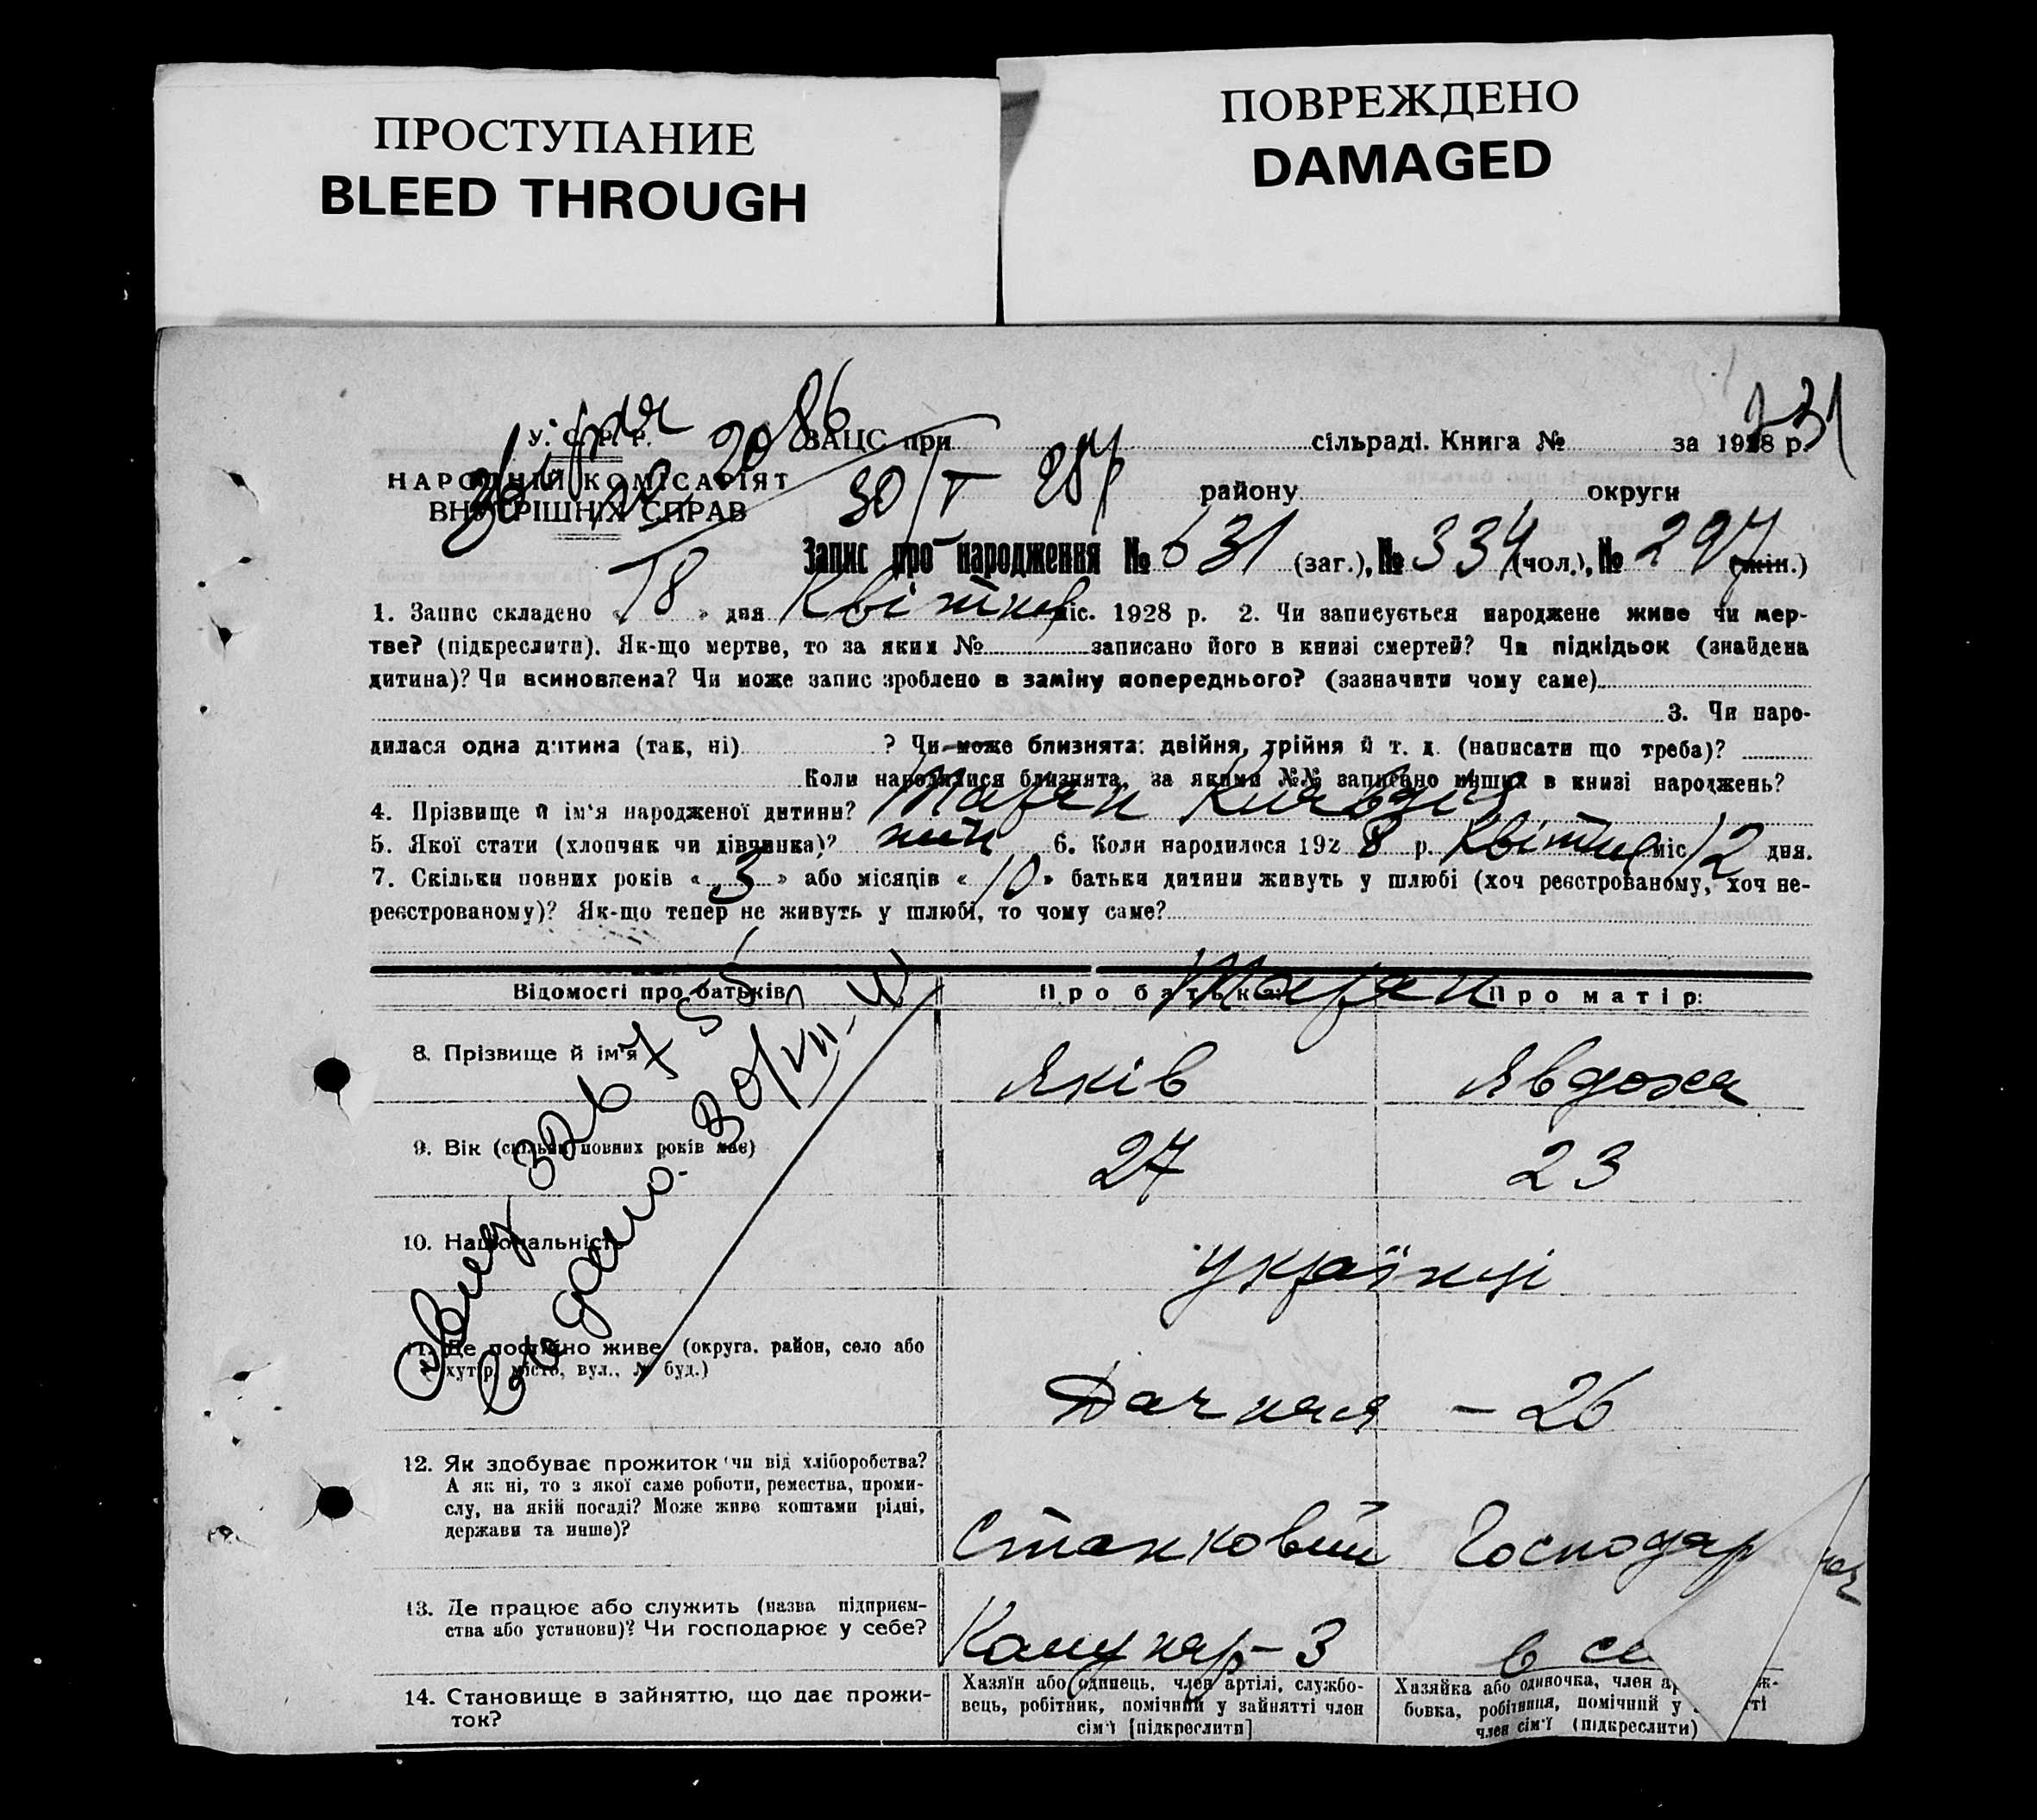 ПРОСТУПАНИЕ
BLEED THROUGH
ПОВРЕЖДЕНО
DAMAGED
231
У. С. Р. Р.
НАРОДНІЙ КОМІСАРІЯТ
ВНУТРІШНІХ СПРАВ
ЗАЦС при сільраді. Книга № за 1928 р.
району округи
Запис про народження № 631 (заг.), № 334 (чол.), № 297 (жін.)
1. Запис складено « 18 » дня Квітня міс. 1928 р. 2. Чи записується народжене живе чи мер-
тве? (підкреслити). Як-що мертве, то за яким № записано його в книзі смертей? Чи підкідьок (знайдена
дитина)? Чи всиновлена? Чи може запис зроблено в заміну попереднього? (зазначити чому саме)
3. Чи наро-
дилася одна дитина (так, ні) ? Чи може близнята: двійня, трійня й т. д. (написати що треба)?
Коли народилися близнята, за якими №№ записано инших в книзі народжень?
4. Прізвище й ім'я народженої дитини? Таран
5. Якої стати (хлопчик чи дівчинка)? 6. Коли народилося 1928 р. Квітня міс 12 дня.
7. Скільки повних років « 3 » або місяців « 10 » батьки дитини живуть у шлюбі (хоч реєстрованому, хоч не-
реєстрованому)? Як-що тепер не живуть у шлюбі, то чому саме?
Відомості про батьків Про батька: Про матір:
Таран
8. Прізвище й ім'я Яків Явдоха
9. Вік (скільки повних років має) 27 23
10. Національність українці
11. Де постійно живе (округа, район, село або
хутір, місто, вул., № буд.)
Дачная – 26
12. Як здобуває прожиток чи від хліборобства?
А як ні, то з якої саме роботи, ремества, проми-
слу, на якій посаді? Може живе коштами рідні,
держави та инше)?
Станковий Господар
13. Де працює або служить (назва підприєм-
ства або установи)? Чи господарює у себе?
Комунар – 3 в се
14. Становище в зайняттю, що дає прожи-
ток?
Хазяїн або одинець, член артілі, службо-
вець, робітник, помічний у зайнятті член
сім'ї [підкреслити]
Хазяйка або одиночка, член ар ж-
бовка, робітниця, помічний у ті
член сім'ї (підкреслити)